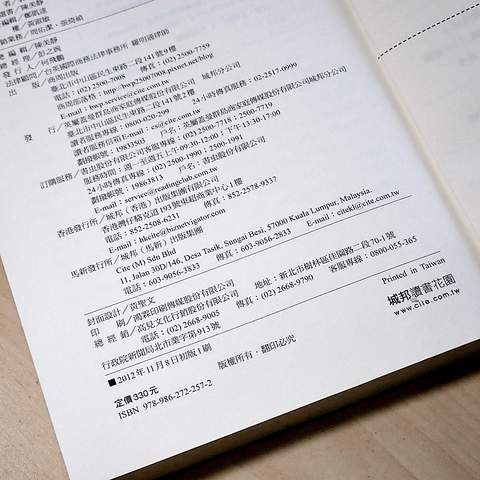 選書／陳美靜
編輯／鄭凱達
校　　對／黃淑敏
銷業務／周佑潔、張倚禎
編　輯／陳美靜
總 經 理／彭之琬
發 行 人／何飛鵬
法律顧問／台英國際商務法律事務所 羅明通律師
出　　版／商周出版
臺北市中山區民生東路二段141號9樓
電話：(02) 2500-7008　傳真：(02) 2500-7759
商周部落格：http://bwp25007008.pixnet.net/blog
E-mail：bwp.service@cite.com.tw
發　　行／英屬蓋曼群島商家庭傳媒股份有限公司　城邦分公司
臺北市中山區民生東路二段141號2樓
讀者服務專線：0800-020-299　24小時傳真服務：02-2517-0999
讀者服務信箱E-mail：cs@cite.com.tw
劃撥帳號：19833503　戶名：英屬蓋曼群島商家庭傳媒股份有限公司城邦分公司
訂購服務／書虫股份有限公司客服專線：(02) 2500-7718；2500-7719
服務時間：週一至週五上午09:30-12:00；下午13:30-17:00
24小時傳真專線：(02) 2500-1990；2500-1991
劃撥帳號：19863813　戶名：書虫股份有限公司
E-mail：service@readingclub.com.tw
香港發行所／城邦（香港）出版集團有限公司
香港灣仔駱克道193號東超商業中心1樓
電話：852-2508-6231　傳真：852-2578-9337
E-mail：hkcite@biznetvigator.com
馬新發行所／城邦（馬新）出版集團
Cite (M) Sdn Bhd
11, Jalan 30D/146, Desa Tasik, Sungai Besi, 57000 Kuala Lumpur, Malaysia.
電話：603-9056-3833　傳真：603-9056-2833　E-mail：citekl@cite.com.tw
封面設計／黃聖文
印　　刷／鴻霖印刷傳媒股份有限公司
總 經 銷／高見文化行銷股份有限公司　地址：新北市樹林區佳園路二段70-1號
電話：(02) 2668-9005　傳真：(02) 2668-9790　客服專線：0800-055-365
行政院新聞局北市業字第913號
■ 2012年11月8日初版1刷
Printed in Taiwan
城邦讀書花園
www.cite.com.tw
定價330元
版權所有．翻印必究
ISBN 978-986-272-257-2